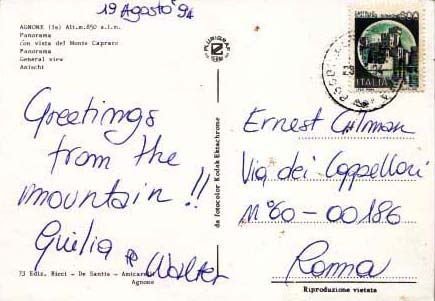 19 Agosto '94
AGNONE (Is) Alt.m.850 s.l.m.
Panorama
con vista del Monte Capraro
Panorama
General view
Ansicht
PLURIGRAF
TERNI
800
ITALIA
Greetings
from the
mountain!!
Giulia & Walter
da fotocolor Kodak Ektachrome
Ernest Gilman
Via dei Cappellari
N° 60 - 00186
Roma
73 Ediz. Ricci - De Santis - Amicarelli
Agnone
Riproduzione vietata